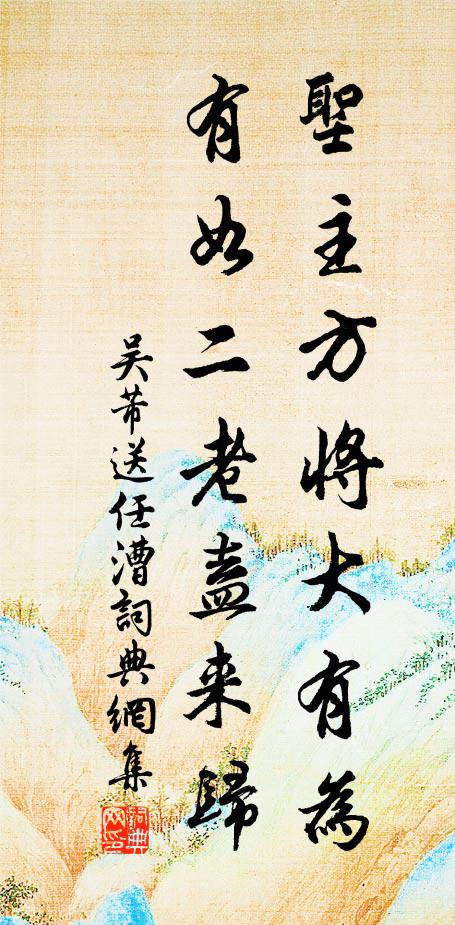 聖主方將大有為
有如二老盍来歸
吴芾送任漕詞典網集
詞典网印